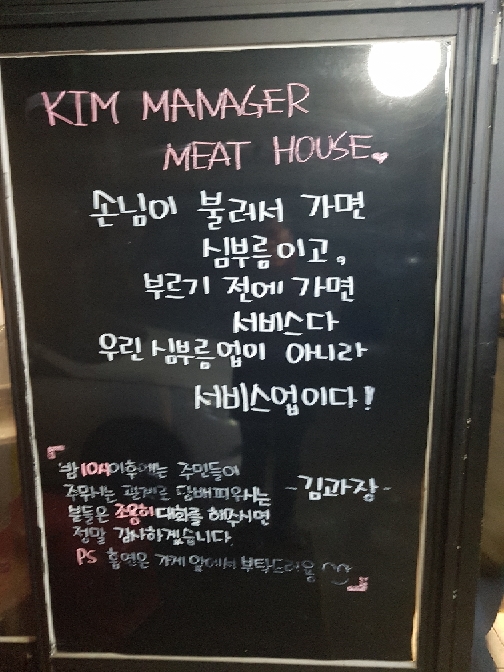 KIM MANAGER
MEAT HOUSE
손님이 불러서 가면
심부름이고,
부르기 전에 가면
서비스다
우린 심부름업이 아니라
서비스업이다!
밤 10시이후에는 주민들이
주무시는 관계로 담배피우시는
분들은 조용히 대화를 해주시면
정말 감사하겠습니다.
PS 흡연은 가게 앞에서 부탁드려용
-김과장-